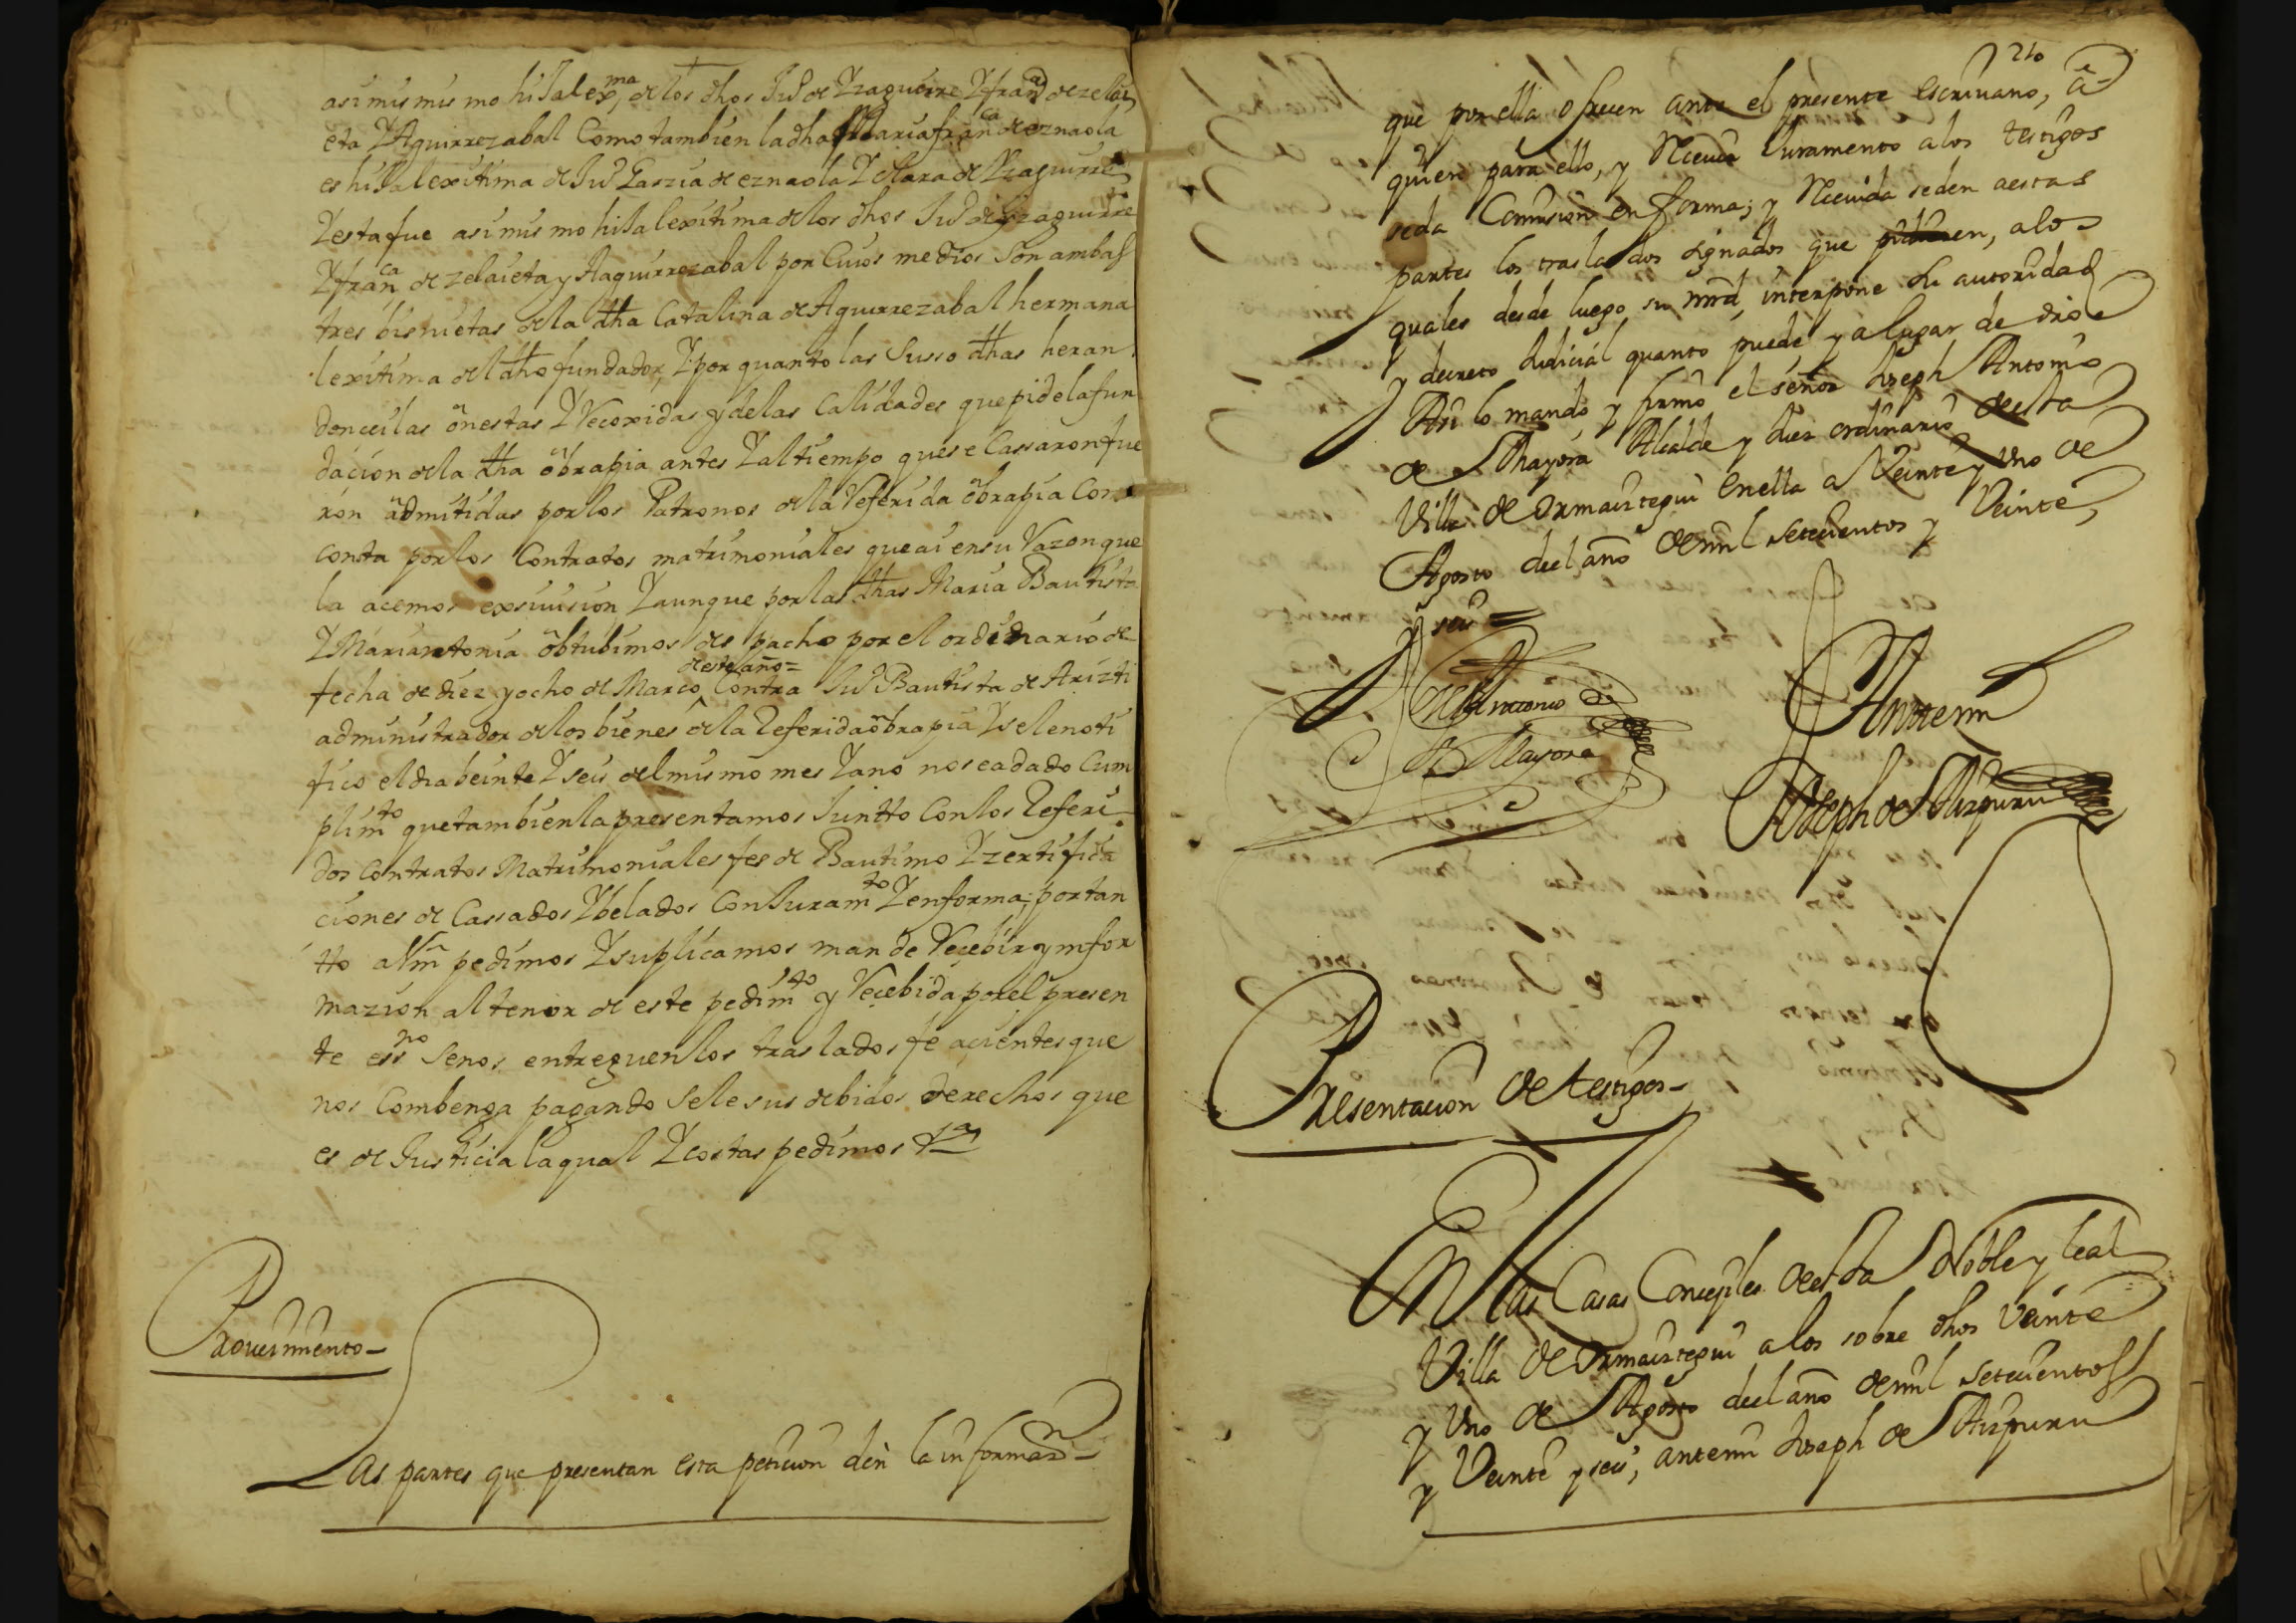 asimismo hija lexma, de los dhos Jud de Yraguirre Y franca de zelai
eta Y Aguirrezabal Como tambien la dha Maria franca de eznaola
es hija lexitima de Jud Garzia de eznaola Y Clara de Yraguirre
Y esta fue asi mismo hija lexitima de los dhos Jud de Yraguirre
Y franca de zelaieta y Aaguirrezabal por Cuios medios Son ambas
tres bisnietas de la dha Catalina de Aguirrezabal hermana
lexitima del dho fundador, Y por quanto las Susso dhas heran
doncellas onestas Y Recoxidas y de las Calidades que pide la fun
dacion de la dha obrapia antes Y al tiempo que se Cassaron fue
ron admitidas por los Patronos de la Referida obrapia Co
consta por los Contratos matrimoniales que ai en su Razon que
la acemos exsivision Y aunque por las dhas Maria Bautista
Y Mariantonia obtubimos despacho por el ordinario de
deste año=
fecha de diez y ocho de Marco, Contra Jud Bautista de Arizti
administrador de los bienes de la Referida obrapia Y se le noti
fico el dia beinte Y seis del mismo mes Y ano no se a dado Cum
plimto que tambien la presentamos Juntto Con los Referi
dos Contratos Matrimoniales fes de Bautimo Y zertifica
ciones de Cassados Y belados Con Juramto Y en forma; por tan
tto a Vm pedimos Y suplicamos mande Recebir ynfor
mazion al tenor de este pedimto y Recebida por el presen
te essno Se nos entreguen los traslados fe acientes que
nos Combenga pagando Sele sus debidos derechos que
es de Justicia la qual Y costas pedimos
Proveimiento-
Las partes que presentan esta peticion den la informaon
210
que por ella ofrecen ante el presente escrivano, a
quien para ello, y Reciva Juramento a los testigos
se da Comision en forma; y Recivida se den a estas
partes los traslados signados que pidieren, a los
quales desde luego su mrd, interpone su autoridad
y decreto Judicial quanto puede y a lugar de dro
Asi lo mando, y firmo el señor Joseph Antonio
de Mayora Alcalde y Juez ordinario de esta
Villa de Ormaiztegui en ella a Veinte y Uno de
Agosto del año de mil setecientos y Veinte,
y seis =
Antonio
de Mayora
Antemi
Joseph de Aizpuru
Presentacion de testigos-
En las Casas Concejiles de esta Noble y Leal
Villa de Ormaiztegui a los sobre dhos Veinte
y Uno de Agosto del año de mil setecientos
y Veinte y seis, antemi Joseph de Aizpuru